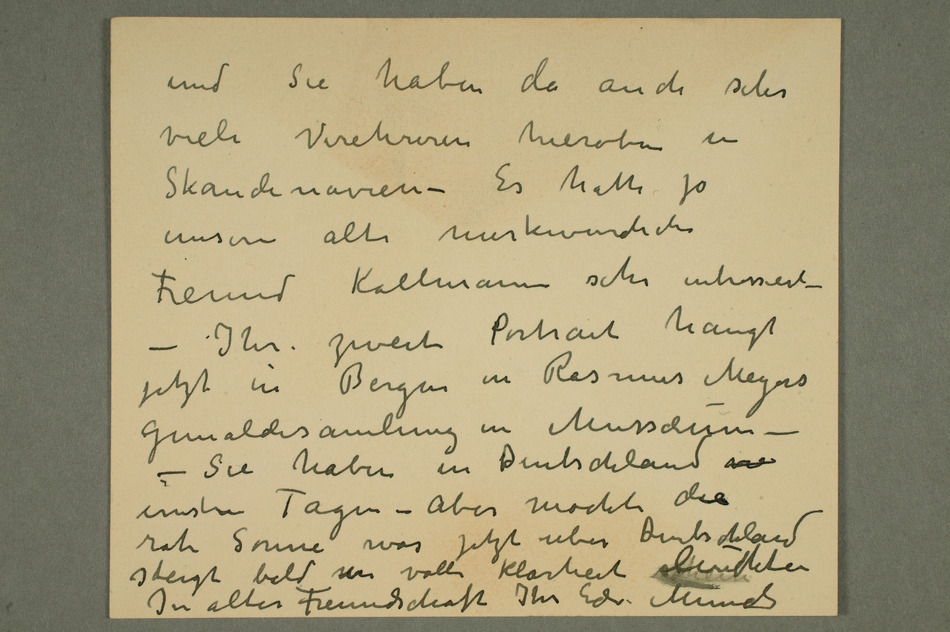 und Sie haben da auch sehr
viele Verehrere hieroben in
Skandinavien – Es hatte jo
unsern alte merkwurdiche
Freund Kollmann sehr intressiert –
– Ihr. zweite Portrait hangt
jetzt in Bergen in Rasmus Meyers
Gemaldesamlung in Mussæum –
– Sie haben in Deutschland
ernste Tage – aber mochte die
rote Sonne was jetzt uber Deutschland
steigt bald in volle Klarheit
In alter Freundschaft Ihr Edv. Munch